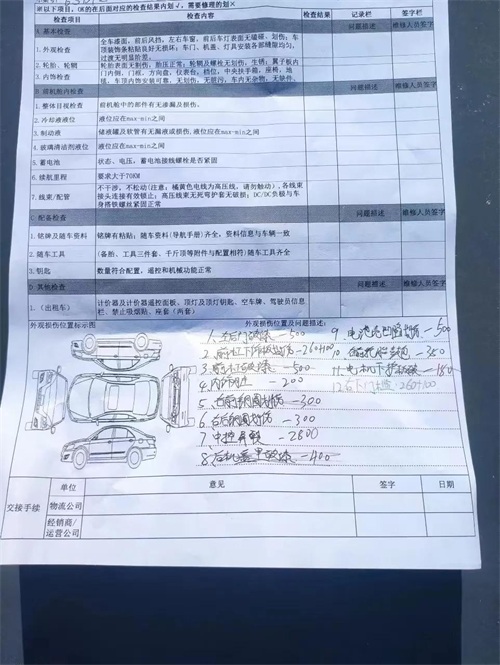 ※以下项目,OK的在后面对应的检查结果内划√,需要修理的划×
检查项目 检查内容 检查结果 记录栏 签字栏
A.基本检查 问题描述 维修人员签字
1.外观检查 全车漆面,前后风挡,左右车窗,前后车灯表面无磕碰、划伤;车顶装饰条粘贴良好无损坏;车门、机盖、灯具安装各部缝隙均匀,过渡无明显阶差。
2.轮胎、轮辋 轮胎表面无割伤,胎压正常;轮辋及螺栓无划伤,生锈;翼子板内
3.内饰检查 门内侧,门框,方向盘,仪表台,档位,中央扶手箱,座椅,地毯,车顶内饰安装可靠,无划伤,无脏污,车内无杂物,无缺件。
B.前机舱内检查 问题描述 维修人员签字
1.整体目视检查 前机舱中的部件有无渗漏及损伤。
2.冷却液液位 液位应在max-min之间
3.制动液 储液罐及软管有无漏液或损伤,液位应在max-min之间
4.玻璃清洁剂液位 液位应在max-min之间
5.蓄电池 状态、电压,蓄电池接线螺栓是否紧固
6.续航里程 要求大于70KM
7.线束/配管 不干涉,不松动(注意:橘黄色电线为高压线,请勿触动),各线束接头连接有效锁止;高压线束无死弯护套无破损;DC/DC负极与车身搭铁螺纹紧固正常
C.配备检查 问题描述 维修人员签字
1.铭牌及随车资料 铭牌有粘贴;随车资料(导航手册)齐全,资料信息与车辆一致
2.随车工具 (备胎、工具三件套、千斤顶等附件与配置相符)随车工具齐全
3.钥匙 数量符合配置,遥控和机械功能正常
D.其他检查 问题描述 维修人员签字
1.(出租车) 计价器及计价器遥控面板、顶灯及顶灯钥匙、空车牌、驾驶员信息栏、禁止吸烟贴、座套(两套)
外观损伤位置标示图 外观损伤位置及问题描述:
1. —500
2. —260+100
3. —500
4. —200
5. 右前钢圈划伤 —300
6. 右后钢圈划伤 —300
7. 中控屏 —2800
8. 后机盖 —400
9. —500
10. —350
11. 电机下护板 —180
12. 260+100
交接手续 单位 意见 签字 日期
物流公司
经销商/运营公司